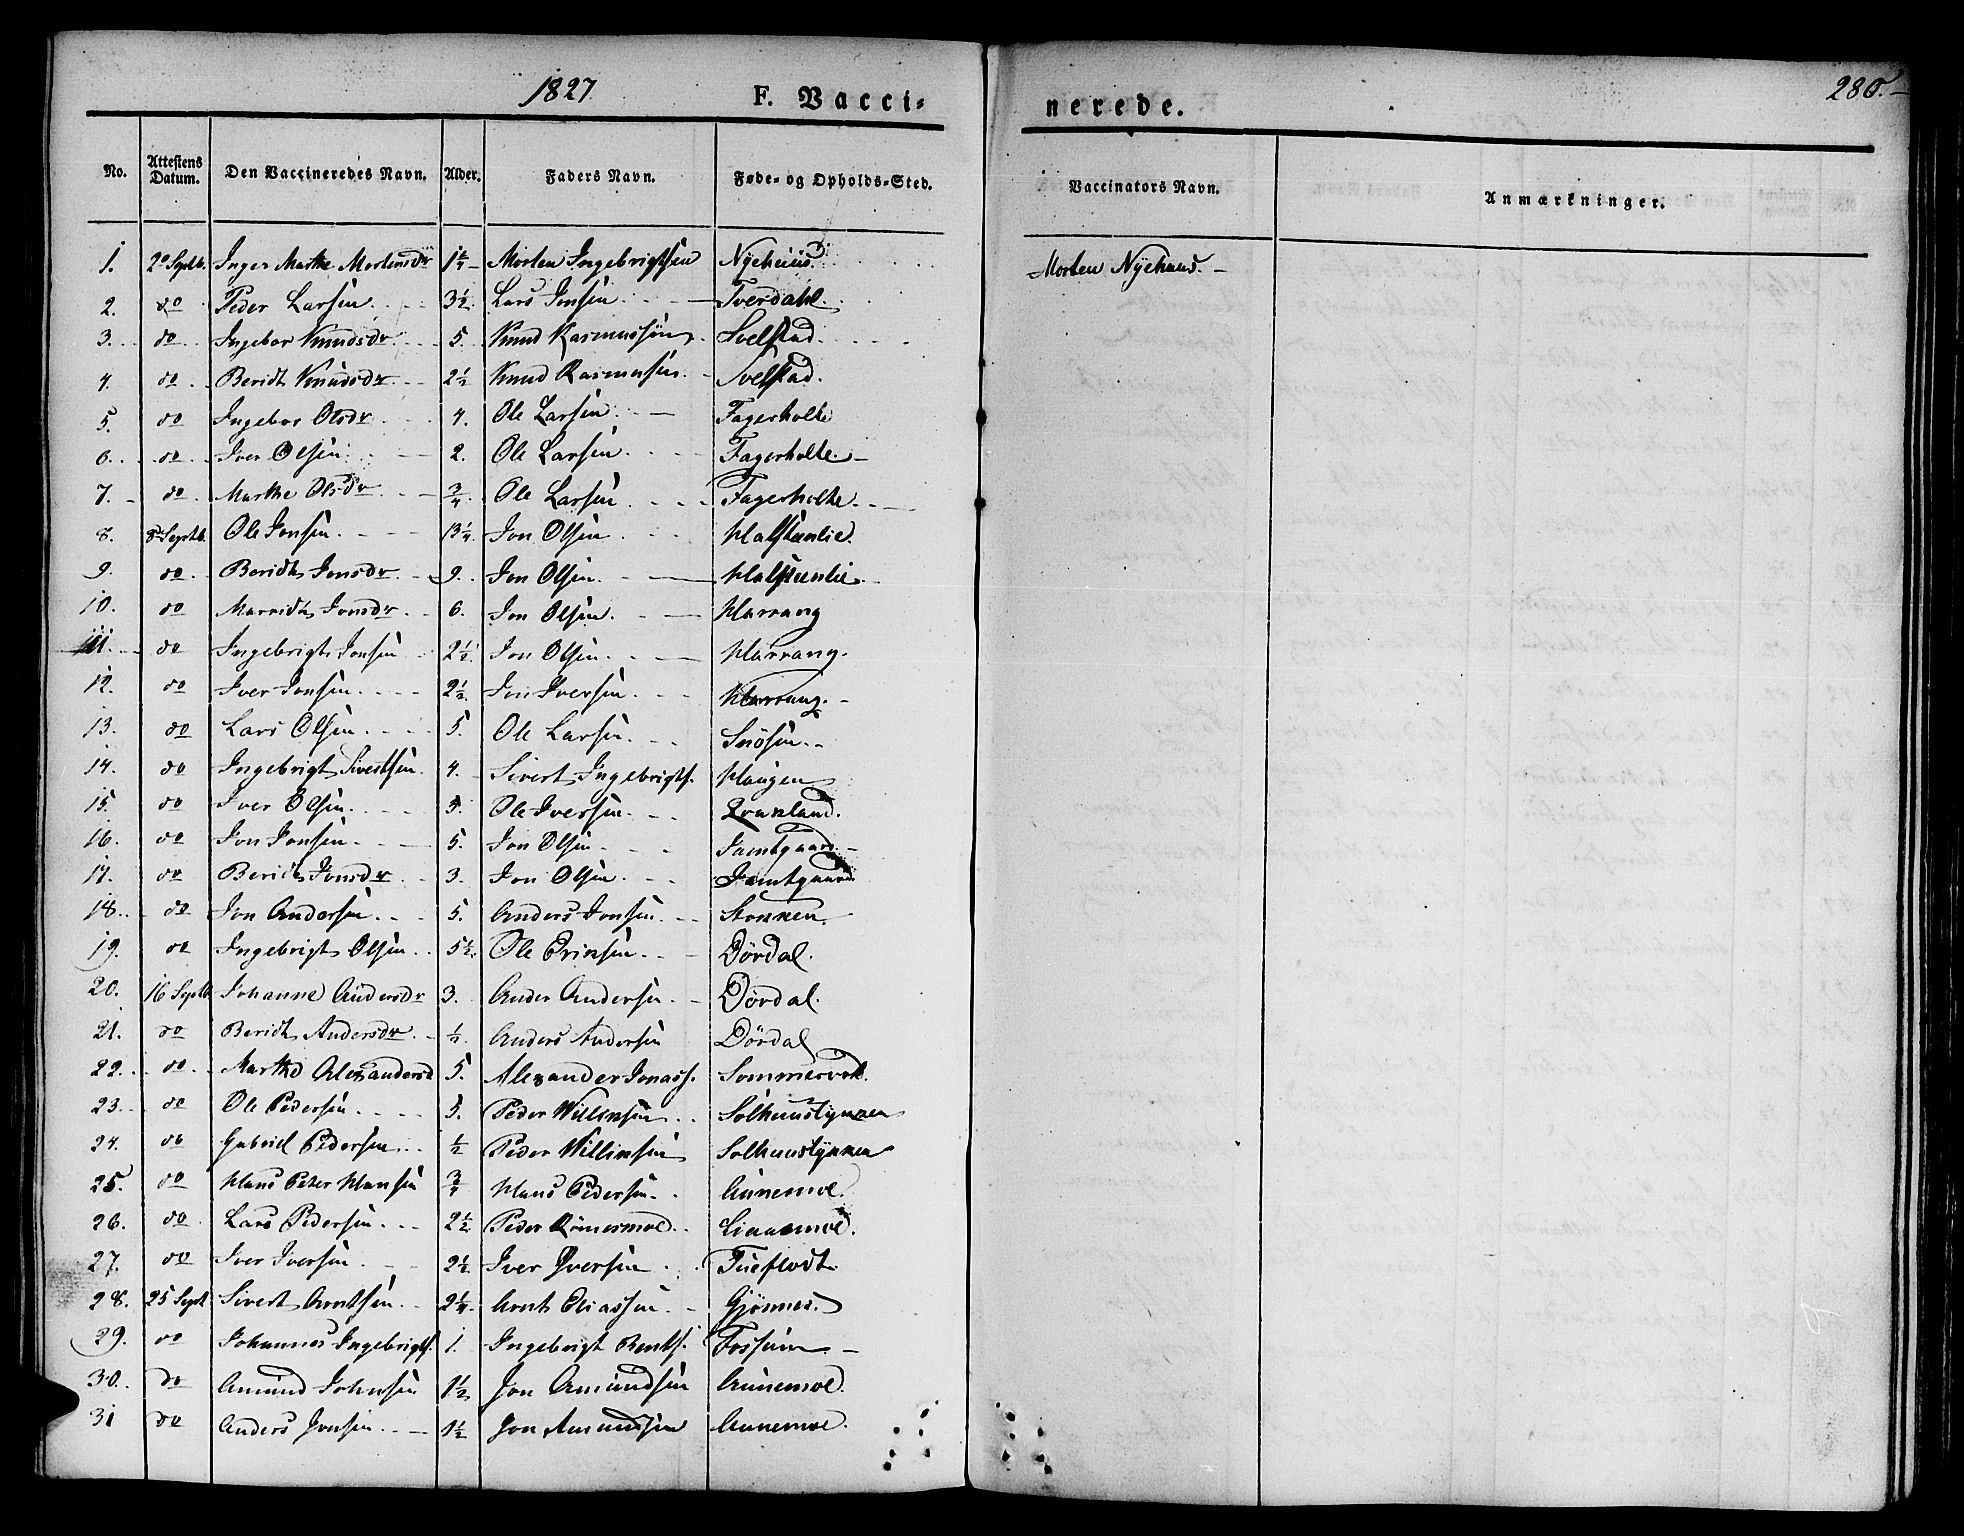 1827
F. Vacci-
nerede.
280.
No. Attestens Datum. Den Vaccineredes Navn. Alder. Faders Navn. Føde- og Opholds-Sted. Vaccinators Navn. Anmærkninger.
1. 2o Septb. Inger Marthe Mortensdr Morten Ingebrigtsen Nyehuus. Morten Nyehuus.
2. do Peder Larsen 3½ Lars Jonsen Tverdahl.
3. do Ingebor Knudsdr 5. Knud Rasmussen Svelstad.
4. do Beridt Knudsdr 2½ Knud Rasmusen Svelstad.
5. do Ingebor Olsdr 4. Ole Larsen Fagerholte
6. do Iver Olsen 2. Ole Larsen Fagerholte
7. do Marthe Olsdr ¾ Ole Larsen Fagerholte
8. Septb. Ole Jonsen 13¼ Jon Olsen Halsteenlie.
9. do Beridt Jonsdr 9. Jon Olsen Halsteenlie.
10. do Marridt Jonsdr 6. Jon Olsen Harrang
11. do Ingebrigt Jonsen 2½ Jon Olsen Harrang.
12. do Iver Jonsen 2½ Jon Iversen Harrang.
13. do Lars Olsen 5. Ole Larsen Snösen
14. do Ingebrigt Sivertsen 4. Sivert Ingebrigts. Haugen
15. do Iver Olsen 5. Ole Iversen Qvanland.
16. do Jon Jonsen 5. Jon Olsen Jamtgaard
17. do Beridt Jonsdr 3. Jon Olsen Jamtgaard
18. do Jon Andersen 5. Anders Jonsen Stokken
19. do Ingebrigt Olsen 5½ Ole Erinsen Dördal.
20. 16 Septb Johanne Andersdr 3. Ander Andersen Dördal.
21. do Beridt Andersdr ½ Anders Andersen Dördal
22. do Marthe Alexandersd 5. Alexander Jonass. Sommervok.
23. do Ole Pedersen 5. Peder Willinsen Solhuustynnen
24. do Gabriel Pedersen ½ Peder Willinsen Solhuustynnen
25. do Hans Peter Hansen ¾ Hans Pedersen Aunemoe.
26. do Lars Pedersen 2½ Peder Römesmoe
27. do Iver Iversen 2½ Iver Iversen Tueflodt.
28. 25 Sept Sivert Arntsen 2¼ Arnt Eliassen Gjönnes.
29. do Johannes Ingebrigts. 1. Ingebrigt Bents. Fossum
30. do Amund Johnsen 1½ Jon Amundsen Aunemoe.
31 do Anders Jonsen 1½ Jon Amundsen Aunemoe.